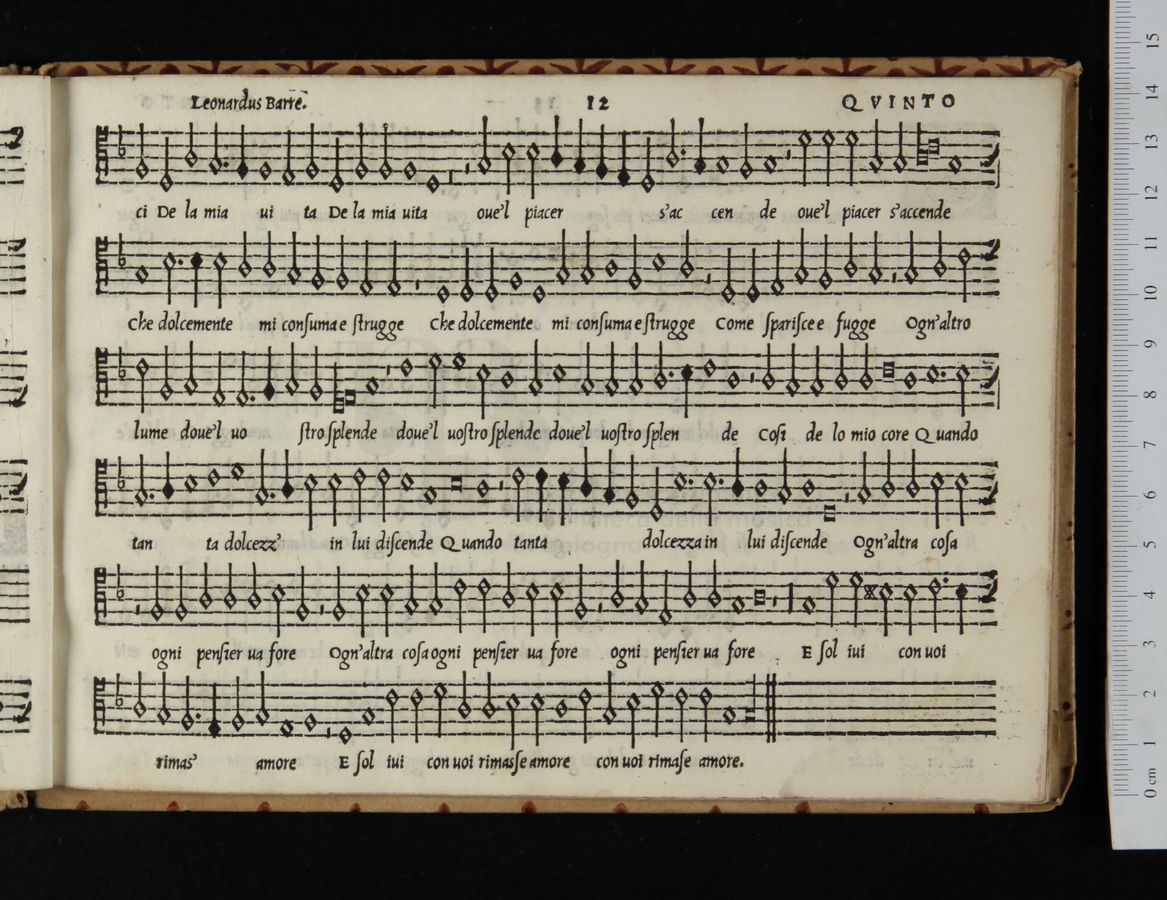 Leonardus Barre. 12 QVINTO
ci De la mia ui ta De la mia uita oue'l piacer s'ac cen de oue'l piacer s'accende
Che dolcemente mi conſuma e ſtrugge Che dolcemente mi conſuma e ſtrugge Come ſpariſce e fugge Ogn'altro
lume doue'l uo ſtro ſplende doue'l uoſtro ſplende doue'l uoſtro ſplen de Coſi de lo mio core Quando
tan ta dolcezz' in lui diſcende Quando tanta dolcezza in lui diſcende Ogn'altra coſa
ogni penſier ua fore Ogn'altra coſa ogni penſier ua fore ogni penſier ua fore E ſol iui con uoi
rimas' amore E ſol iui con uoi rimaſſe amore con uoi rimaſe amore.
15
14
13
12
11
10
9
8
7
6
5
4
3
2
1
0 cm